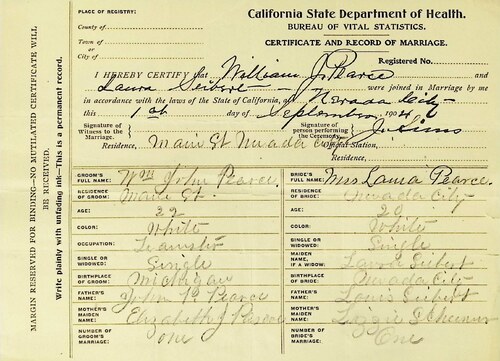 PLACE OF REGISTRY:
County of
Town of
or
City of
California State Department of Health.
BUREAU OF VITAL STATISTICS.
CERTIFICATE AND RECORD OF MARRIAGE.
Registered No.
I HEREBY CERTIFY that William J. Pearce and
Laura Seibert were joined in Marriage by me
in accordance with the laws of the State of California, at Nevada City
this 1st day of September 190
Signature of Witness to the Marriage.
Signature of person performing the Ceremony. J. Sims
Residence, Main St Nevada City
Official Station,
Residence,
MARGIN RESERVED FOR BINDING—NO MUTILATED CERTIFICATE WILL BE RECEIVED.
Write plainly with unfading ink—This is a permanent record.
GROOM'S FULL NAME: Wm John Pearce
RESIDENCE OF GROOM: Main St.
AGE: 22
COLOR: White
OCCUPATION: Teamster
SINGLE OR WIDOWED: Single
BIRTHPLACE OF GROOM: Michigan
FATHER'S NAME: John P Pearce
MOTHER'S MAIDEN NAME: Elizabeth J Pascoe
NUMBER OF GROOM'S MARRIAGE: One
BRIDE'S FULL NAME: Mrs Laura Pearce
RESIDENCE OF BRIDE: Nevada City
AGE: 20
COLOR: White
SINGLE OR WIDOWED: Single
MAIDEN NAME, IF A WIDOW: Laura Seibert
BIRTHPLACE OF BRIDE: Nevada City
FATHER'S NAME: Louis Seibert
MOTHER'S MAIDEN NAME: Lizzie
NUMBER OF BRIDE'S MARRIAGE: One